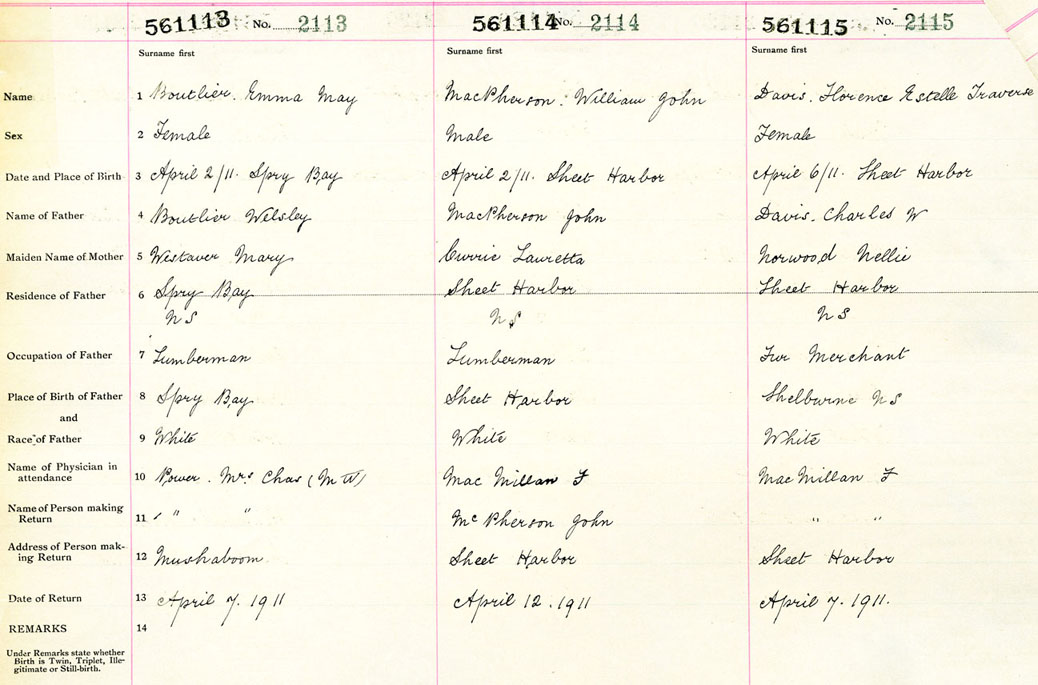 561113 No. 2113 561114 No. 2114 561115 No. 2115
Surname first Surname first Surname first
Name 1 Boutlier. Emma May MacPherson. William John Davis. Florence Estelle Traverse
Sex 2 Female Male Female
Date and Place of Birth 3 April 2/11. Spry Bay April 2/11. Sheet Harbor April 6/11. Sheet Harbor
Name of Father 4 Boutlier Welsley MacPherson John Davis. Charles W
Maiden Name of Mother 5 Westaver Mary Currie Lauretta Norwood Nellie
Residence of Father 6 Spry Bay Sheet Harbor Sheet Harbor
NS NS NS
Occupation of Father 7 Lumberman Lumberman Fur Merchant
Place of Birth of Father 8 Spry Bay Sheet Harbor Shelburne NS
and
Race of Father 9 White White White
Name of Physician in
attendance 10 Power. Mrs Chas (M W) MacMillan F MacMillan F
Name of Person making
Return 11 " " McPherson John " "
Address of Person mak-
ing Return 12 Mushaboom Sheet Harbor Sheet Harbor
Date of Return 13 April 7. 1911 April 12. 1911 April 7. 1911.
REMARKS 14
Under Remarks state whether
Birth is Twin, Triplet, Ille-
gitimate or Still-birth.